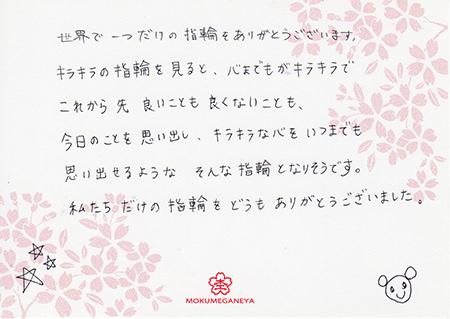 世界で一つだけの指輪をありがとうございます。
キラキラの指輪を見ると、心までもがキラキラで
これから先 良いことも良くないことも、
今日のことを思い出し、キラキラな心をいつまでも
思い出せるような そんな指輪となりそうです。
私たちだけの指輪をどうもありがとうございました。
杢
MOKUMEGANEYA